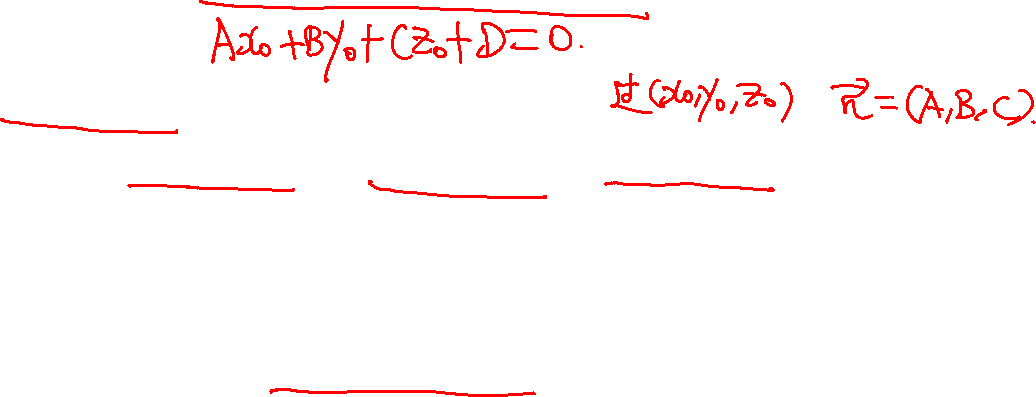 Ax₀+By₀+Cz₀+D=0.
过(x₀,y₀,z₀) n⃗=(A,B,C).